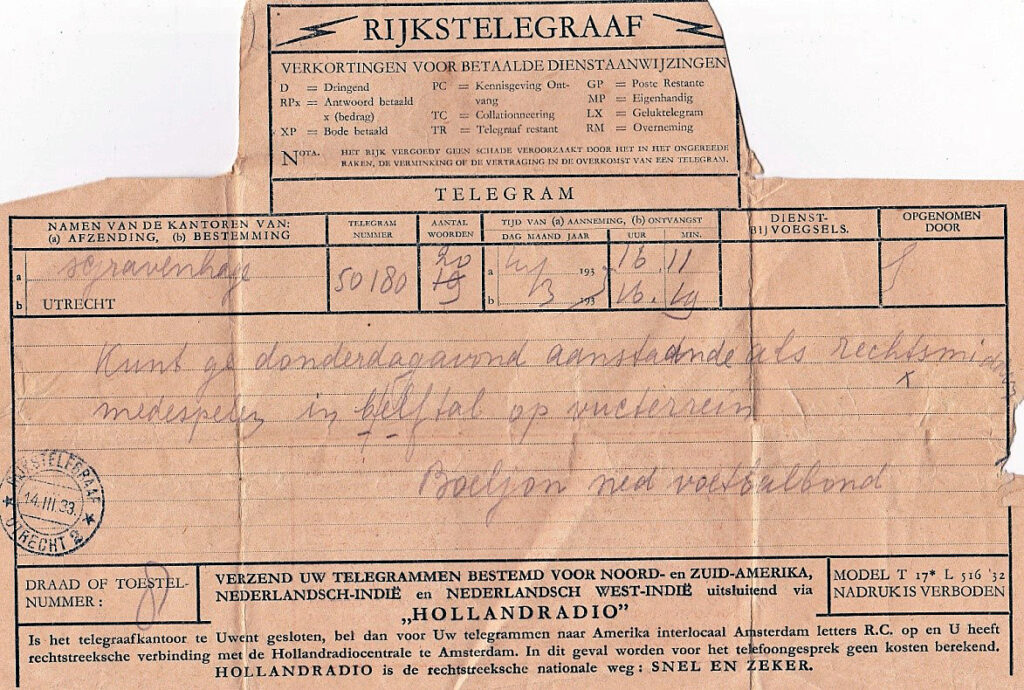 RIJKSTELEGRAAF
VERKORTINGEN VOOR BETAALDE DIENSTAANWIJZINGEN
D = Dringend
RPx = Antwoord betaald
x (bedrag)
XP = Bode betaald
PC = Kennisgeving Ont-
vangst
TC = Collationneering
TR = Telegraaf restant
GP = Poste Restante
MP = Eigenhandig
LX = Geluktelegram
RM = Overneming
NOTA. HET RIJK VERGOEDT GEEN SCHADE VEROORZAAKT DOOR HET IN HET ONGEREEDE
RAKEN, DE VERMINKING OF DE VERTRAGING IN DE OVERKOMST VAN EEN TELEGRAM.
TELEGRAM
NAMEN VAN DE KANTOREN VAN:
(a) AFZENDING, (b) BESTEMMING
TELEGRAM
NUMMER
AANTAL
WOORDEN
TIJD VAN (a) AANNEMING, (b) ONTVANGST
DAG MAAND JAAR
UUR
MIN.
DIENST-
BIJVOEGSELS.
OPGENOMEN
DOOR
a sgravenhage 50180 20 19 a 193 16 11
b UTRECHT b 193 16. 19
Kunt ge donderdagavond aanstaande als rechtsmidden
medespelen in elftal op vucterrein
Boeljon ned voetbalbond
RIJKSTELEGRAAF
14.III.33.
UTRECHT 2
DRAAD OF TOESTEL-
NUMMER:
VERZEND UW TELEGRAMMEN BESTEMD VOOR NOORD- en ZUID-AMERIKA,
NEDERLANDSCH-INDIË en NEDERLANDSCH WEST-INDIË uitsluitend via
„HOLLANDRADIO”
MODEL T 17* L 516 '32
NADRUK IS VERBODEN
Is het telegraafkantoor te Uwent gesloten, bel dan voor Uw telegrammen naar Amerika interlocaal Amsterdam letters R.C. op en U heeft
rechtstreeksche verbinding met de Hollandradiocentrale te Amsterdam. In dit geval worden voor het telefoongesprek geen kosten berekend.
HOLLANDRADIO is de rechtstreeksche nationale weg: SNEL EN ZEKER.